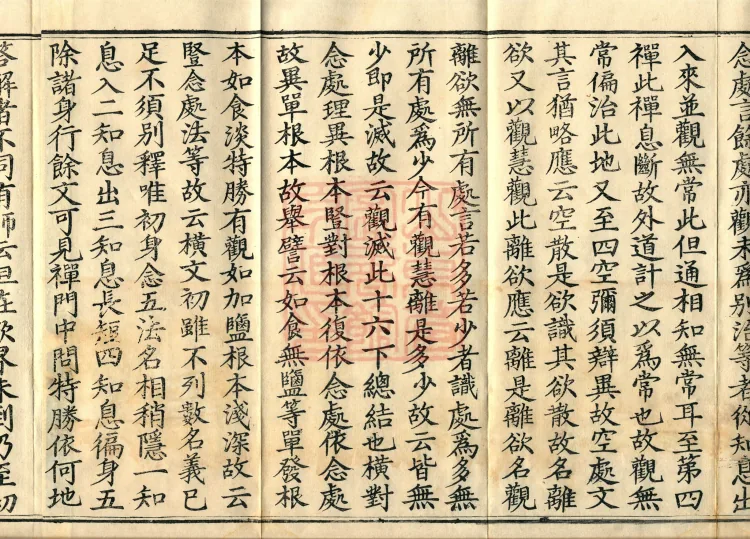 念處言餘處亦觀未爲別治等者從知息出
入來並觀無常此但通相知無常耳至第四
禪此禪息斷故外道計之以爲常也故觀無
常偏治此地又至四空彌須辯異故空處文
其言猶略應云空散是欲識其欲散故名離
欲又以觀慧觀此離欲應云離是離欲名觀
離欲無所有處言若多若少者識處爲多無
所有處爲少今有觀慧離是多少故云皆無
少即是滅故云觀滅此十六下總結也橫對
念處理異根本豎對根本復依念處依念處
故異單根本故舉譬云如食無鹽等單發根
本如食淡特勝有觀如加鹽根本淺深故云
豎念處法等故云橫文初雖不列數名義已
足不須別釋唯初身念五法名相稍隱一知
息入二知息出三知息長短四知息徧身五
除諸身行餘文可見禪門中問特勝依何地
答解者不同有師云但在欲界未到乃至初